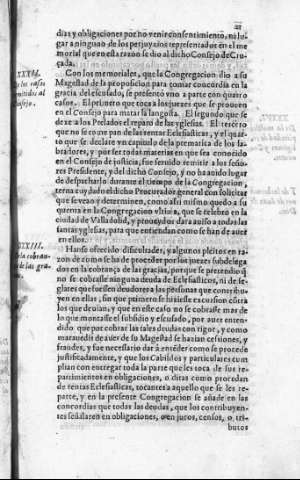 21
dias y obligaciones por no venir consentimiento, ni lugar
a ninguno de los perjuyzios representados en el me
morial que en esta razon se dio al dicho Consejo de Cru
çada.
XXXVI.
Con los memoriales, que la Congregacion dio a su
Magestad de la proposicion para tomar concordia en la
gracia del escusado, se presento vno a parte con quatro
casos. El primero que toca a los juezes que se proueen
en el Consejo para matar la langosta. El segundo que se
dexe a los Prelados el reparo de las yglesias. El tercero
que no se rompan de las rentas Eclesiasticas, y el quar
to que se declare vn capitulo de la prematica de los la
bradores, y por ser todas materias en que sea conocido
en el Consejo de justicia, fue seruido remitir a los seño
res Presidente, y del dicho Consejo, y no ha auido lugar
de despacharlo durante el tiempo de la Congregacion,
terna cuydado el dicho Procurador general con solicitar
que se vean y determinen, como assi mismo quedo a su
querna en la Congregacion vltima, que se celebrò en la
ciudad de Valladolid, y procurarà dar auiso a todas las
santas yglesias, para que entiendan como se han de auer
en ellos.
Hanse ofrecido dificultades, y algunos pleitos en ra-
zon de como se ha de proceder por los juezes subdelega
dos en la cobrança de las gracias, porque se pretendio que
no se cobrasse ninguna deuda de Eclesiasticos, ni de se-
glares que fuessen deudores a las personas que contribu
yen en ellas, sin que primero se hiziesse excursion côtra
los que deuian, y que en este caso no se cobrasse mas de
lo que montasse el subsidio y escusado, por auer enten-
dido que por cobrar las tales deudas con rigor, y como
marauedis de auer de su Magestad se hazian cesiones, y
fraudes, y fue necessario dar à entêder como se procede
justificadamente, y que los Cabildos y particulares cum
plian con entregar toda la parte que les toca de sus re-
partimientos en obligaciones, o ditas como procedan
de rentas Eclesiasticas, tocante ria aquello que se les re-
parte, y en la presente Congregacion se añade en las
concordias que todas las deudas, que los contribuyen-
tes señalaren en obligaciones, o en juros, censos, o tri-
butos